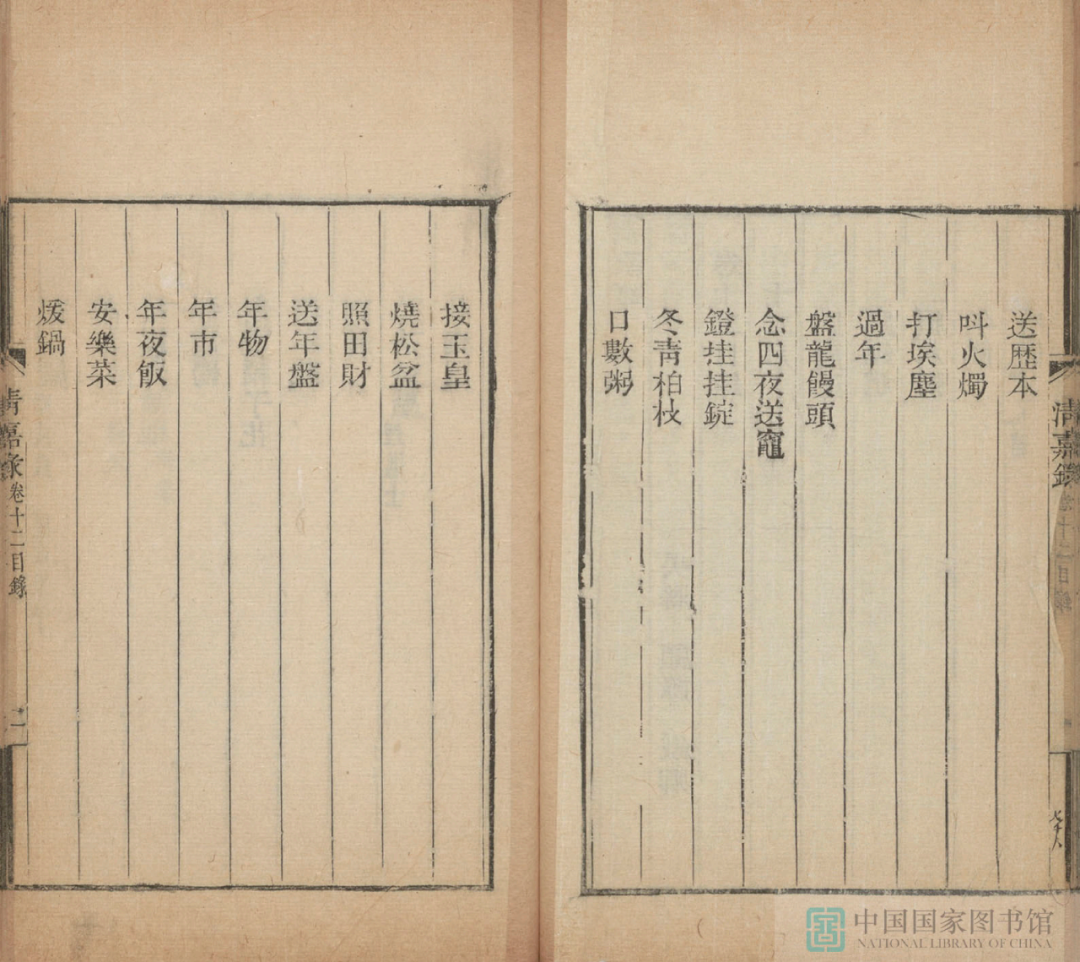 送歷本
呌火燭
打埃塵
過年
盤龍饅頭
念四夜送竈
鐙挂挂錠
冬青柏枝
口數粥
接玉皇
燒松盆
照田財
送年盤
年物
年市
年夜飯
安樂菜
煖鍋
清嘉錄 卷十二目錄
清嘉錄 卷十二目錄 二
中国国家图书馆
NATIONAL LIBRARY OF CHINA